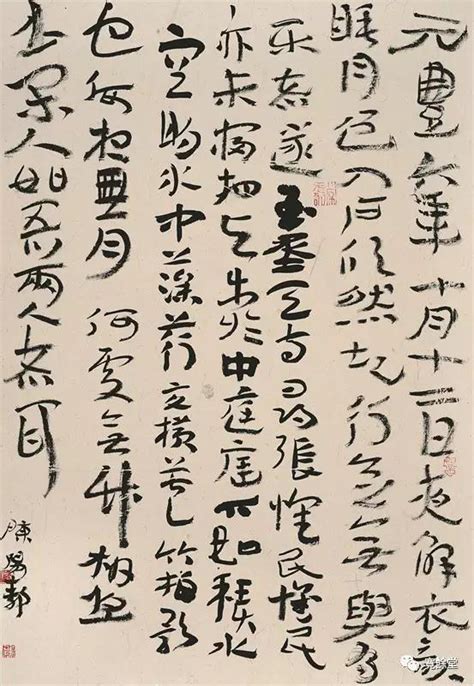 元豐六年十月十二日夜解衣欲
睡月色入户欣然起行念無與為
乐者遂至承天寺尋張懷民懷民
亦未寢相与步於中庭庭下如積水
空明水中藻荇交横蓋竹柏影
也何夜無月何處無竹柏但
少閑人如吾兩人者耳